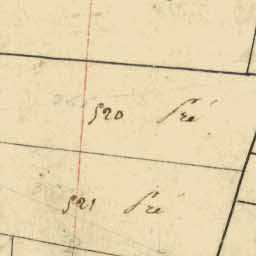 520 Pré
521 Pré